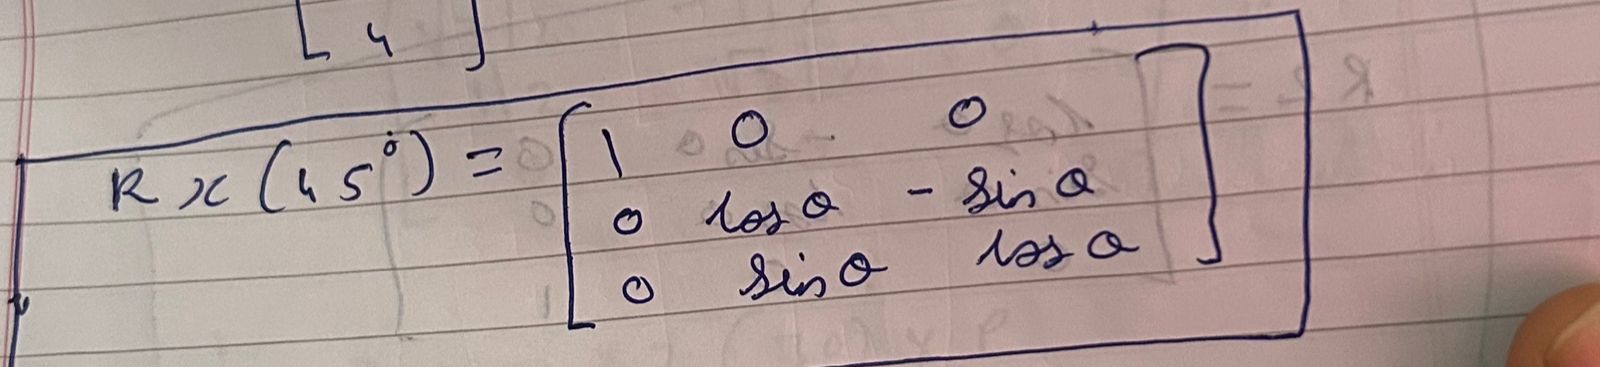 [ 4 ]
Rx(45°) = [ 1 0 0
0 cosθ - sinθ
0 sinθ cosθ ]